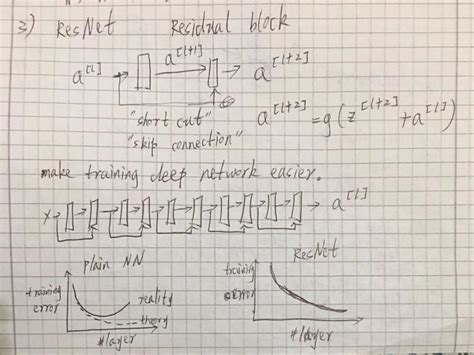 3) ResNet Residual block
a^[l] → a^[l+1] → a^[l+2]
"short cut"
"skip connection"
a^[l+2] = g(z^[l+2] + a^[l])
make training deep network easier.
X → a^[l]
plain NN
training error
reality
theory
#layer
ResNet
training error
#layer